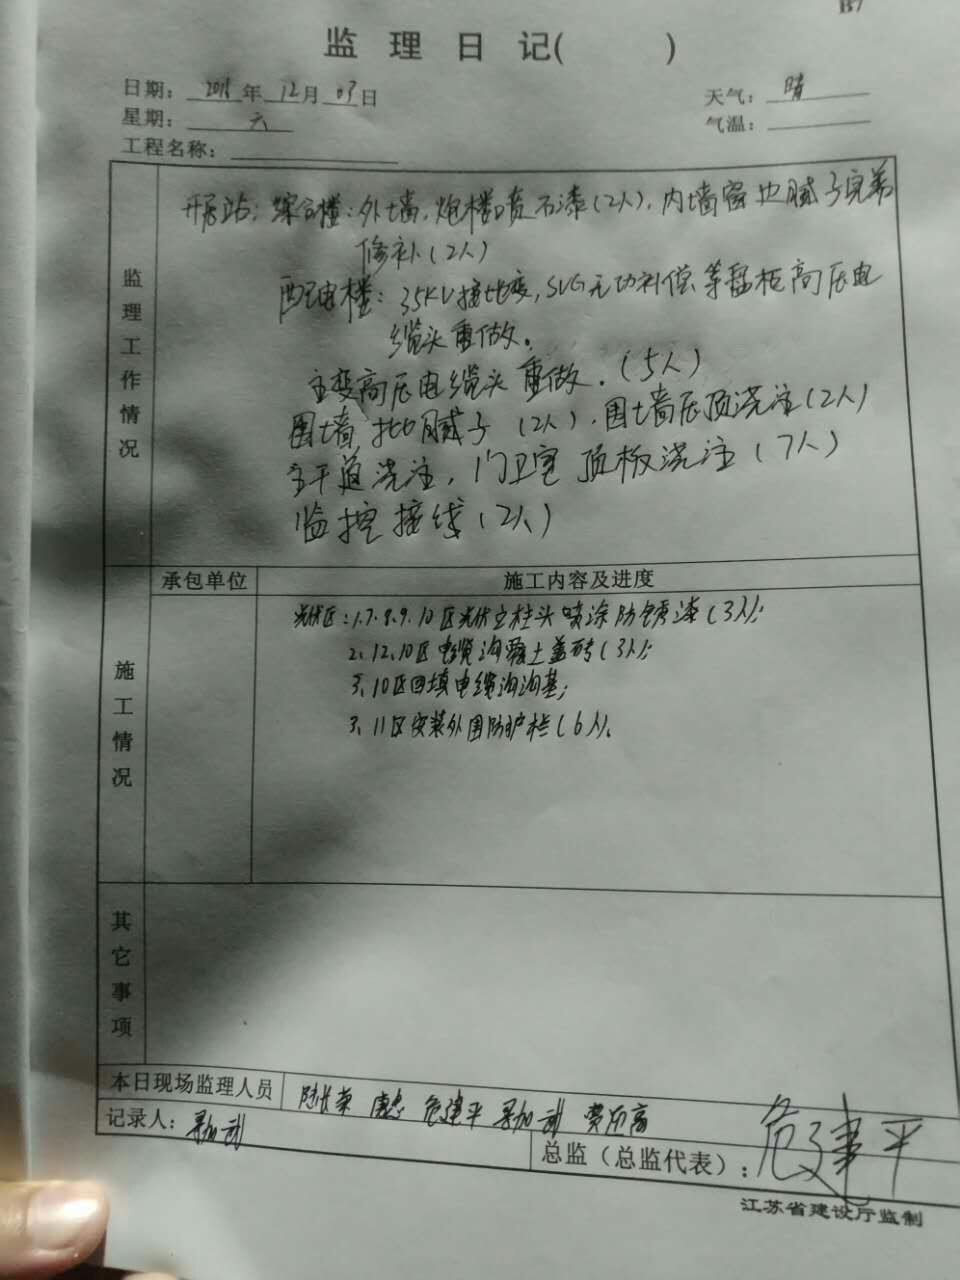 B7
监 理 日 记(          )
日期：2016年12月03日
天气：晴
星期：六
气温：
工程名称：
监理工作情况
开压站：综合楼：外墙，炮楼喷石漆(2人)，内墙窗边腻子完善
修补(2人)
配电楼：35KV接地变，SVG无功补偿等盘柜高压电
缆头重做。
主变高压电缆头重做。(5人)
围墙批腻子(2人)，围墙压顶浇注(2人)
主干道浇注，门卫室顶板浇注(7人)
监控接线(2人)
承包单位
施工内容及进度
施工情况
光伏区：1.7.8.9.10区光伏立柱头喷涂防锈漆(3人)；
2、12、10区电缆沟覆土盖砖(3人)；
3、10区回填电缆沟沟基；
3、11区安装外围防护栏(6人)。
其它事项
本日现场监理人员
危建平
记录人：
总监（总监代表）：危建平
江苏省建设厅监制